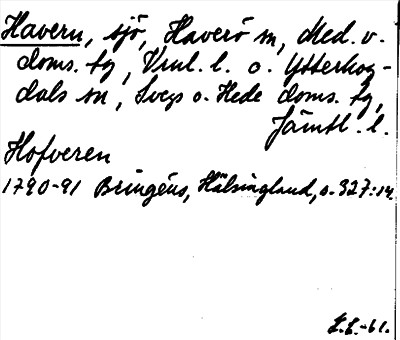 Havern, sjö, Haverö sn, Med. v.
doms. tg, Vnl. l. o. Ytterhog-
dals sn, Svegs o. Hede doms. tg,
Jämtl. l.
Hofveren
1790-91 Bringéus, Hälsingland, s. 327:14.
E.E.-61.